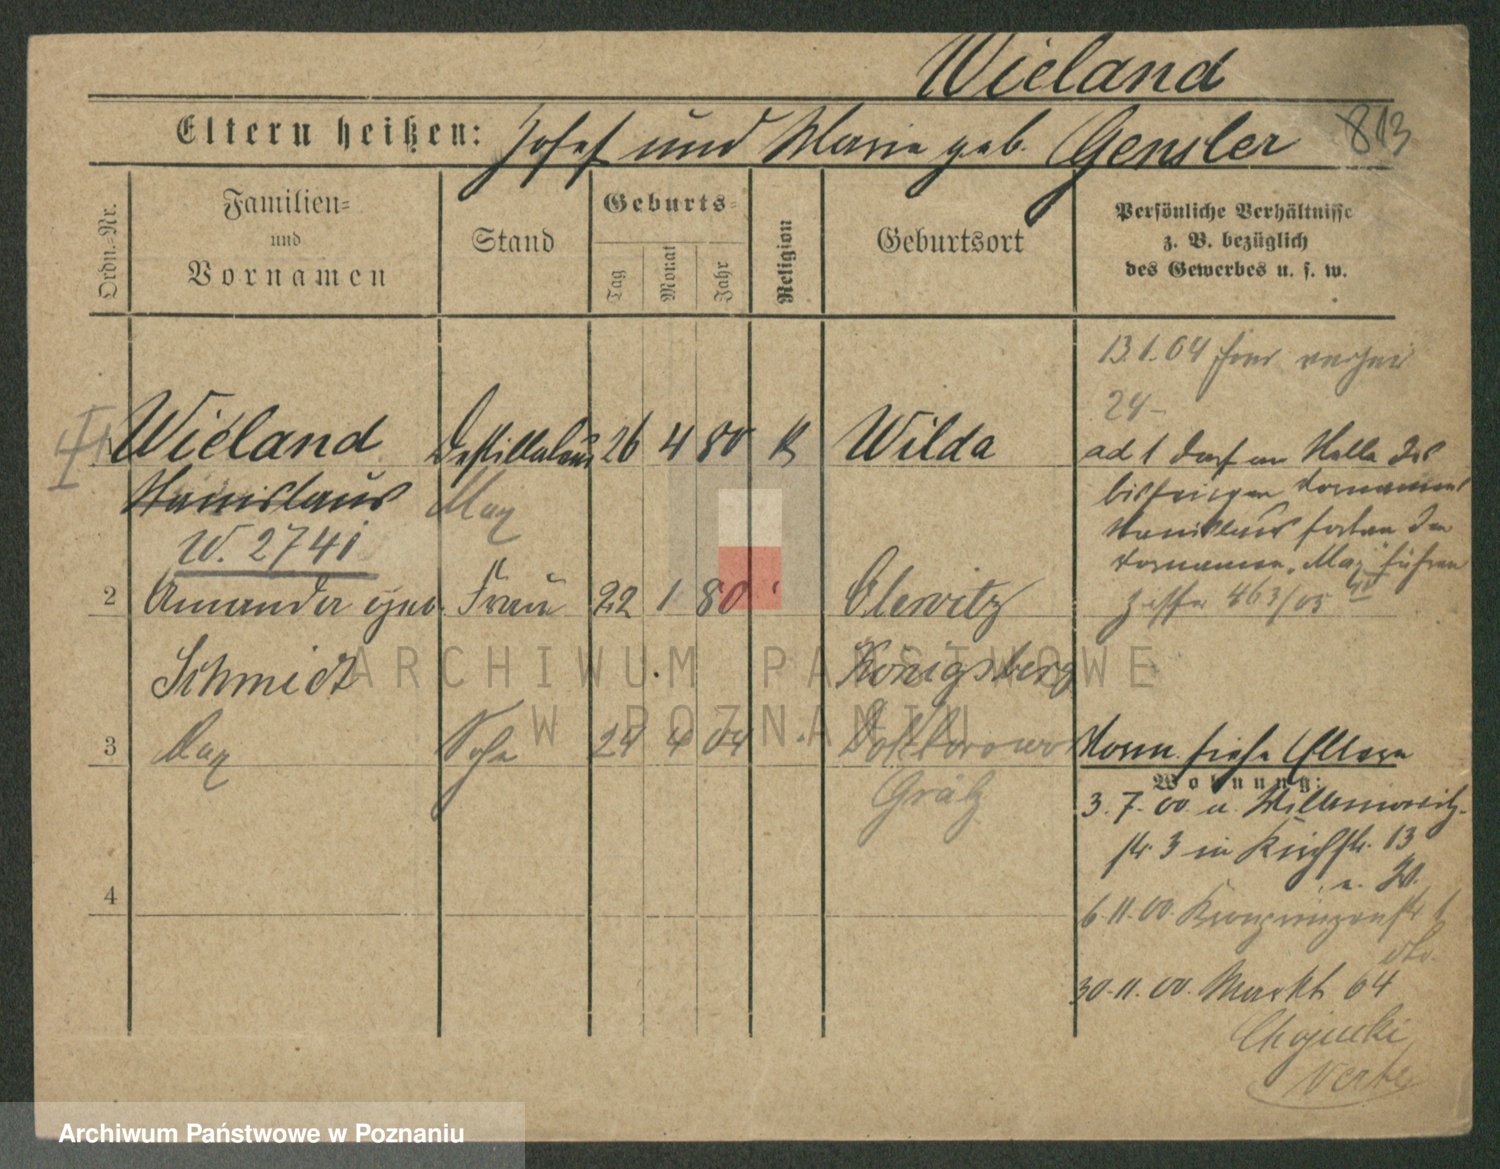 Wieland
Eltern heißen: Josef und Marie geb. Gensler
813
Ordn.-Nr.
Familien-
und
Vornamen
Stand
Geburts-
Tag
Monat
Jahr
Religion
Geburtsort
Persönliche Verhältnisse
z. B. bezüglich
des Gewerbes u. s. w.
13.1.04
24
Wieland 26 4 80 K Wilda
Stanislaus Max
W. 2741
ad 1 darf an Stelle des
bisherigen Vornamens
Stanislaus fortan den
Vornamen "Max" führen
463/05
2 Amanda geb. Frau 22 1 80 Olewitz
Schmidt Königsberg
3 Max Sohn 24 4 04 Doktorowo
Grätz
Vorm. siehe Eltern
Wohnung:
3.7.00 u.
str 3 in Kirchstr. 13
4
6.11.00. Kronprinzenstr
30.11.00. Markt 64
ARCHIWUM PAŃSTWOWE
W POZNANIU
Archiwum Państwowe w Poznaniu